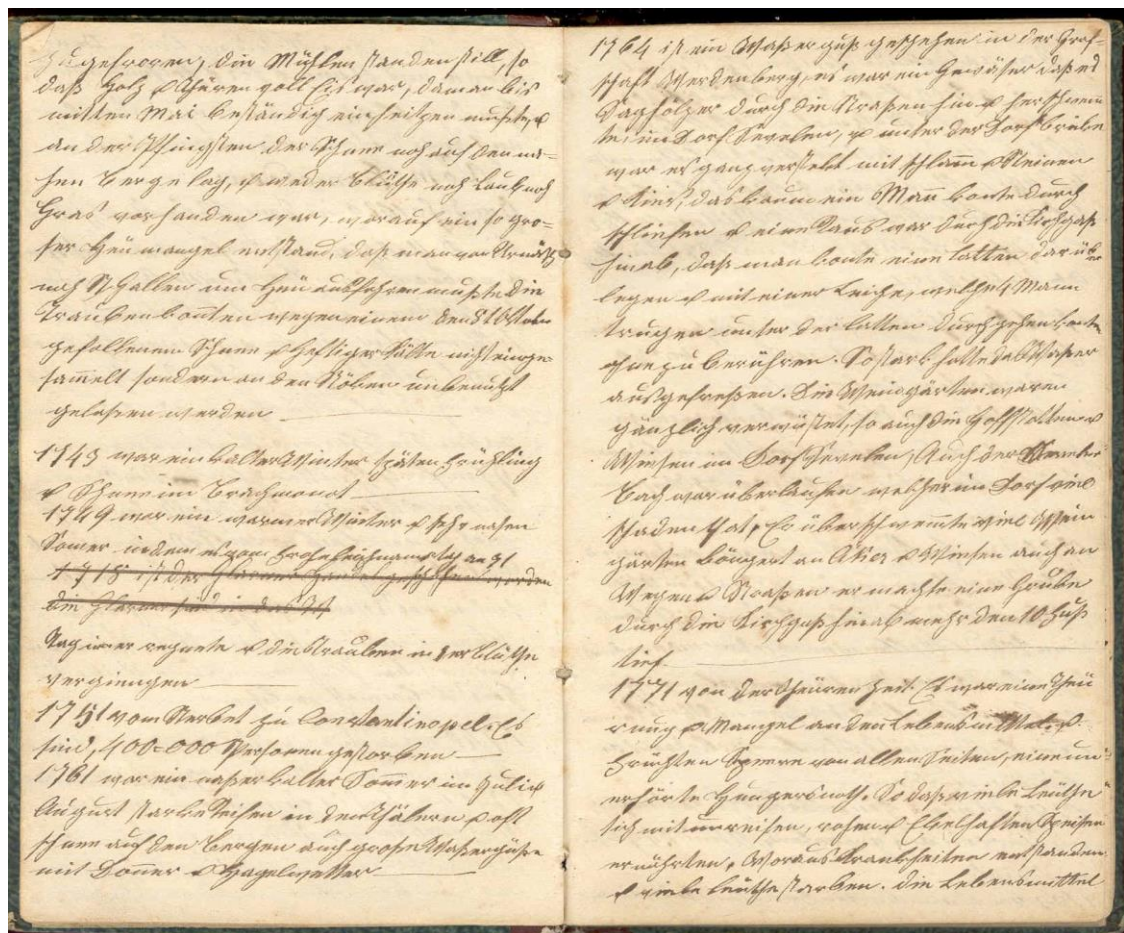 zugefroren, die Mühlen standen still, so
daß Holz & Thüren voll Eis war, da man bis
mitten Mai beständig einheitzen mußte, &
an der Pfingsten der Schnee noch auf den na-
hen Berge lag, & weder Blüthe noch Laub noch
Gras vorhanden war, worauf ein so gro-
ser Heumangel entstand, daß man von
nach St Gallen um Heu ausfahren mußte Die
Trauben konten wegen einem den 8 Oktober
gefallenem Schnee & heftiger Kälte nicht einge-
samelt sondern an den Reben unbenuzt
gelaßen werden
1743 war ein kalter Winter späten Frühling
& Schnee im Brachmonat
1749 war ein warmer Winter & sehr nasen
Somer indem es vom Frohnleichnamstag an 91
1715 ist der Glarner Handel geschehen worden
die Glarner sind in das
Tag imer regnete & die Trauben in der Blüthe
vergiengen
1751 vom Sterbet zu Constantinopel. Es
sind, 400=000 Personen gestorben
1761 war ein naßer kalter Somer im Juli &
August starke Reifen in den Thälern & oft
schnee auf den Bergen auch große Waßergüße
mit Doner & Hagelwetter
1764 ist ein Waßerguß geschehen in der Graf-
schaft Werdenberg, es war ein Gewäßer daß es
Saghölzer durch die Straßen hin & her schwem
te, im Dorf Sevelen, & unter der Dorfbrüke
war es ganz verstekt mit schlam & Steinen
& Kies, das kaum ein Man konte durch
schliefen & eine Taub war durch die Kirchgaß
hinab, daß man konte eine Latten darüber
legen & mit einer Leiche, welche 4 Mann
trugen unter der Latten durchgehen konte
ohne zu berühren. So stark hatte das Waßer
ausgefreßen. Die Weingärten waren
gänzlich verwüstet, so auch die Hoffstatten &
Wiesen im Dorf Sevelen, Auch der
Bach war überlaufen welcher im Dorf viel
schaden that, Er überschwemte viel Wein
gärten Böngert an Aker & Wiesen auch an
Wegen & Straßen er machte eine Graube
durch die Kirchgaß hinab mehr den 10 Fuß
tief.
1771 von der theuren Zeit. Es war eine Theu
rung & Mangel an den Lebensmittel, &.
Früchten Sperre von allen Seiten, eine un-
erhörte Hungersnoth. So daß viele Leuthe
sich mit unreifen, rohen & Ekelhaften Speisen
ernährten, Woraus Krankheiten entstanden
& viele Leuthe starben. Die Lebensmittel